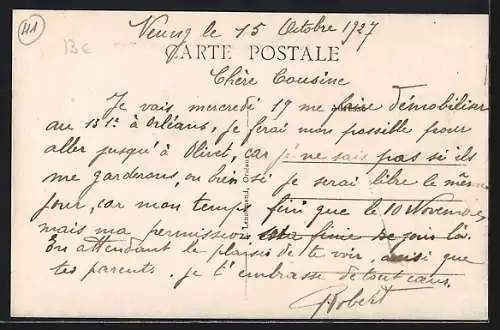 41
13 c
Neung le 15 Octobre 1927
CARTE POSTALE
Chère Cousine
Je vais mercredi 19 me faire démobiliser
au 131e à Orléans, je ferai mon possible pour
aller jusqu'à Olivet, car je ne sais pas si ils
me garderons, ou bien si je serai libre le même
jour, car mon temps fini que le 10 Novembre,
mais ma permission est finie ce jour là.
En attendant le plaisir de te voir, ainsi que
tes parents, je t'embrasse de tout cœur.
Robert
Lenormand, Orléans